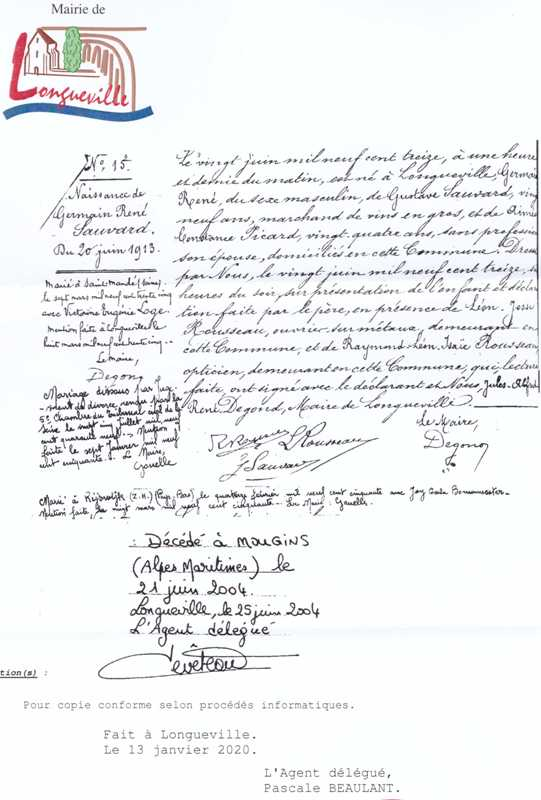 Mairie de
Longueville
No. 15
Naissance de
Germain René
Sauvard.
Du 20 juin 1913.
Marié à Saint Mandé (Seine)
le sept mars mil neuf cent trente cinq
avec Victorine Eugénie Loge.
Mention faite à Longueville le
huit mars mil neuf cent trente cinq
Le maire,
Degond
Mariage dissous par Juge-
ment de divorce rendu par la
5e Chambre du Tribunal civil de la
Seine le vingt cinq juillet mil neuf
cent quarante neuf. Mention
faite le sept Janvier mil neuf
cent cinquante. Le Maire,
Le vingt juin mil neuf cent treize, à une heure
et demie du matin, est né à Longueville, Germain
René, du sexe masculin, de Gustave Sauvard, vingt
neuf ans, marchand de vins en gros, et de
Constance Picard, vingt quatre ans, sans profession
son épouse, domiciliés en cette Commune. Dressé
par Nous, le vingt juin mil neuf cent treize,
heures du soir, sur présentation de l'enfant et déclara
tion faite par le père, en présence de Léon, Jean
Rousseau, ouvrier sur métaux, demeurant en
cette Commune, et de Raymond Léon Isaïe Rousseau
opticien, demeurant en cette Commune, qui, lecture
faite, ont signé avec le déclarant et Nous Jules Alfred
René Degond, Maire de Longueville
Le Maire,
Degond
R Rousseau L Rousseau
J Sauvard
Marié à Rijswijk (Z.H.) (Pays Bas), le quatorze février mil neuf cent cinquante avec
Mention faite, le vingt mars mil neuf cent cinquante. Le Maire
Décédé à MOUGINS
(Alpes Maritimes) le
21 juin 2004.
Longueville, le 25 juin 2004
L'Agent délégué
tion(s) :
Pour copie conforme selon procédés informatiques.
Fait à Longueville.
Le 13 janvier 2020.
L'Agent délégué,
Pascale BEAULANT.